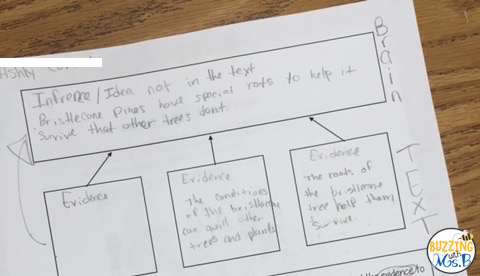 Brain
Infrence/Idea not in the text
Bristlecone Pines have special roots to help it
survive that other trees don't
TEXT
Evidence
Evidence
The conditions
of the bristlecone
can quill other
trees and plants
Evidence
The roots of
the bristlecone
tree help them
survive
BUZZING
with
Ms. B
evidence to